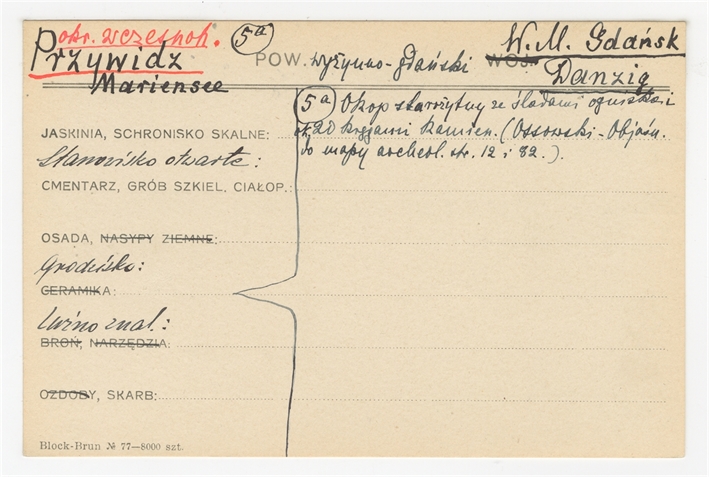 okr. wczesnoh. 5a
Przywidz POW. wyżynno-gdański WOJ. W. M. Gdańsk
Mariensee Danzig
5a Okop starożytny ze śladami ogniska i
JASKINIA, SCHRONISKO SKALNE: 20 kręgami kamien. (Ossowski - Objaśn.
Stanowisko otwarte: do mapy archeol. str. 12 i 82.).
CMENTARZ, GRÓB SZKIEL, CIAŁOP.:
OSADA, NASYPY ZIEMNE:
Grodzisko:
CERAMIKA:
Luźno znal.:
BROŃ, NARZĘDZIA:
OZDOBY, SKARB:
Block-Brun № 77—8000 szt.